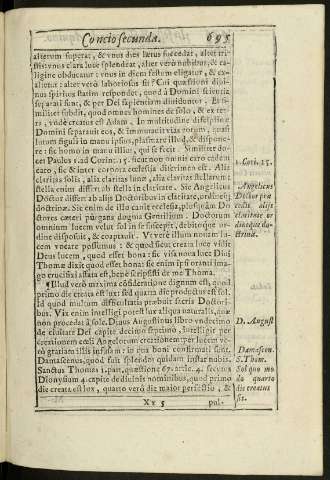 Concio secunda. 695
alterum superat, & vnus dies lætus succedat, alter tri-
stis: vnus clara luce splendeat, alter verò nubibus, & ca-
ligine obducatur: vnus in diem festum eligatur, & ex-
altetur: alter verò laboriosus sit? Cui quæstioni diui-
nus spiritus statim respondet, quod à Domini scientia
separati sunt, & per Dei sapientiam diuiduntur. Et si-
militer subdit, quod omnes homines de solo, & ex ter-
ra, vnde creatus est Adam. In multitudine disciplinæ
Domini separauit eos, & immutauit vias eorum, quasi
lutum figuli in manu ipsius, plasmare illud, & dispone-
re: sic homo in manu illius, qui se fecit. Similiter do-
cet Paulus 1. ad Corint. 15. sicut non omnis caro eadem
caro, sic & inter corpora ecclesia differentia est. Alia
claritas solis, alia claritas lunæ, alia claritas stellarum:
stella enim differt ab stella in claritate. Sic Angelicus
Doctor differt ab alijs Doctoribus in claritate, ordine, &
doctrina. Sic enim de illo canit ecclesia, plusquam Do
ctores cæteri purgans dogma Gentilium. Doctorum
omnium lucem velut sol in se suscepit, debitoque or-
dine disposuit, & coaptauit. Vt verè illum nouam lu-
cem vocare possumus: & quod sicut creata luce vidit
Deus lucem, quod esset bona: sic visa noua luce Diui
Thomæ dixit quod esset bona: sic enim ipsi oranti ima-
go crucifixi affata est, bene scripsisti de me Thoma.
¶ Illud verò maxima cõsideratione dignum est, quod
primo die creata est lux: sed quarta die productus est sol.
Id quod multum difficultatis præbuit sacris Doctori-
bus. Vix enim intelligi potest lux aliqua naturalis, quæ
non procedat à sole. Diuus Augustinus libro vndecimo
de ciuitate Dei capite decimo septimo, intelligit per
creationem cœli Angelorum creationem: per lucem ve-
rò gratiam illis infusam: in qua boni confirmati sunt.
Damascenus, quod fuit splendor quidam instar nubis.
Sanctus Thomas 1. part. quæstione 67. artic. 4. secutus
Dionysium 4. capite de diuinis nominibus, quod primo
die creata est lux, quarto verò die maior perfectio, &
Xx 5 pul-
1. Cori. 15.
Angelicus
Doctor præ
cellit alijs
claritate or
dine que do
ctrina.
D. August
Damascen.
S. Thom.
Sol quo mo
do quarto
die creatus
sit.